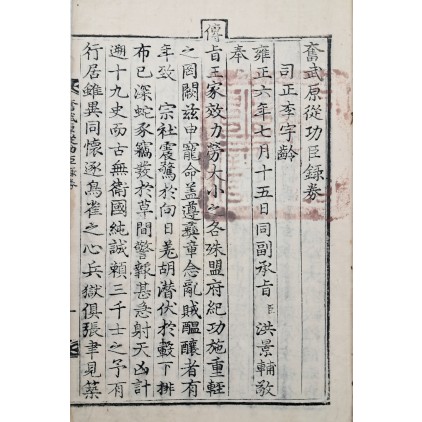 奮武原從功臣錄券
司正李宇齡
雍正六年七月十五日同副承旨臣洪景輔敬
奉
傳
旨王家效力勞大小之各殊盟府紀功施重輕
之罔闕玆申寵命盖遵彝章念亂賊醞釀者有
年致 宗社震驚於向日羌胡潛伏於轂下排
布已深蛇豕竊發於草間警報甚急射天凶計
遡十九史而古無衛國純誠賴三千士之予有
行居雖異同懷逐鳥雀之心兵獄俱張聿見築